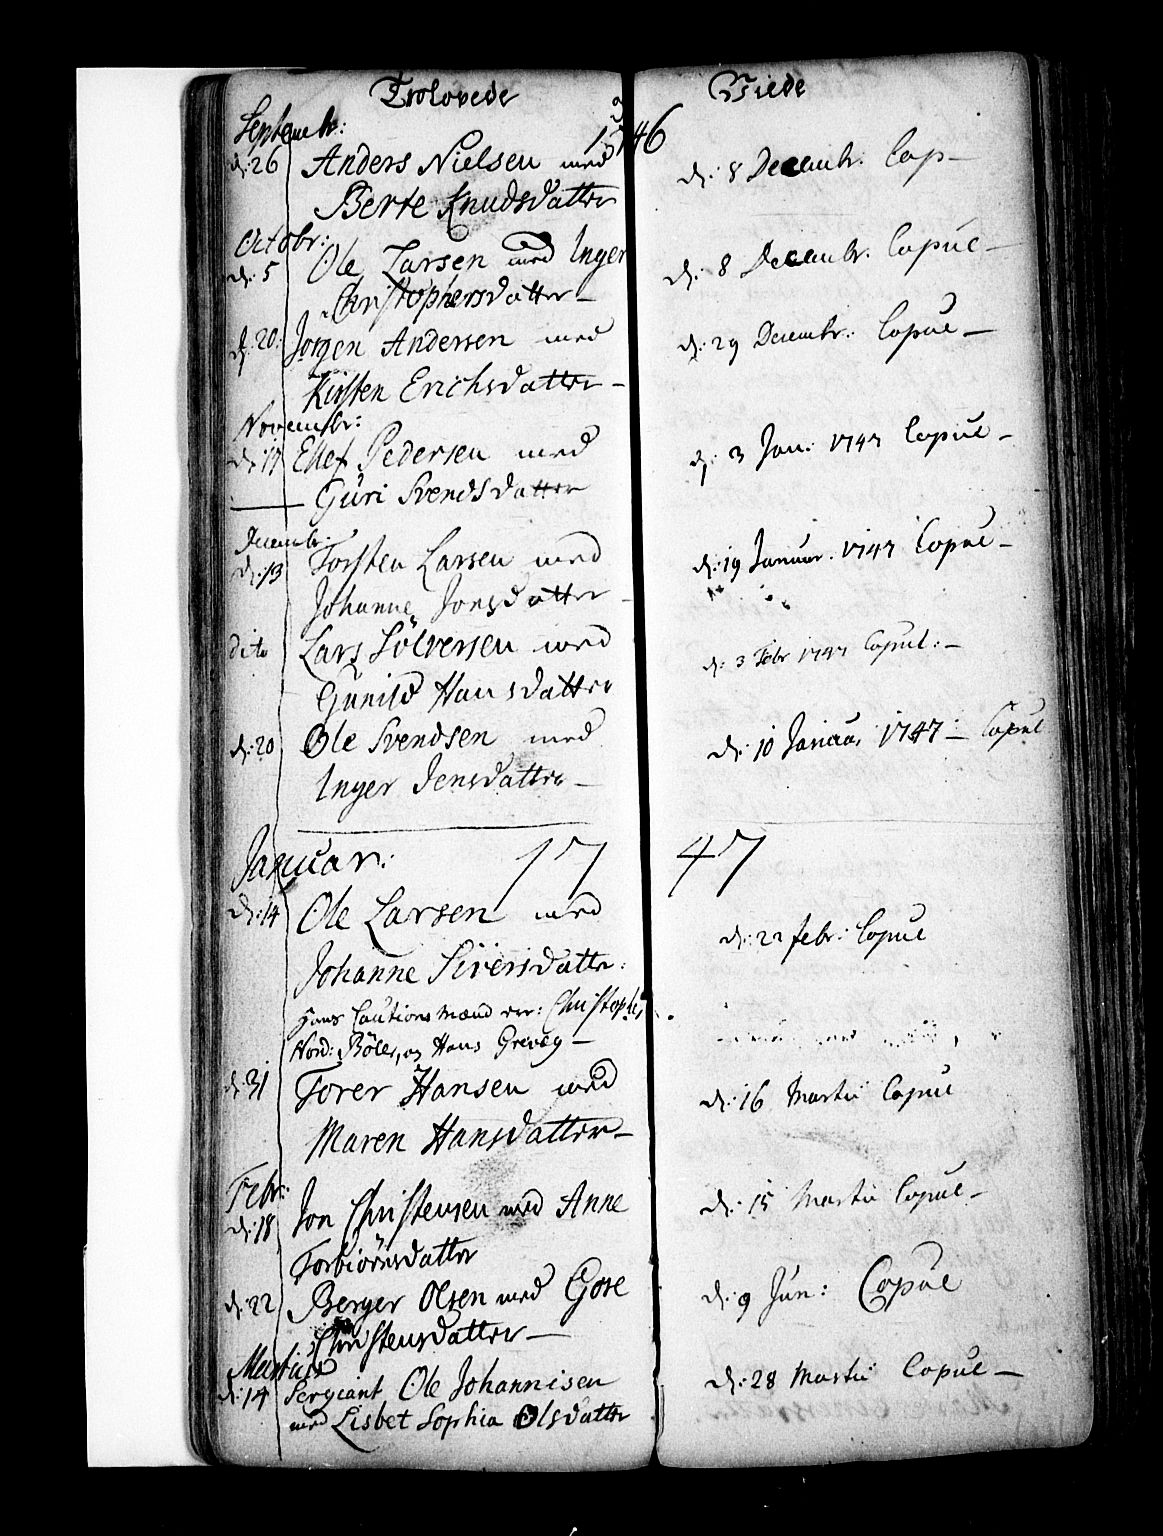 Trolovede
Viede
1746
Septembr:
d: 26 Anders Nielsen med
Berte Knudsdatter
d: 8 Decembr. Cop—
Octobr:
d: 5 Ole Larsen med Inger
Christophersdatter—
d: 8 Decembr. Copul—
d: 20: Jörgen Andersen med
Kirsten Erichsdatter—
d: 29 Decembr: Copul—
Novembr:
d: 17 Ellef Pedersen med
Guri Svendsdatter
d: 3 Jan: 1747 Copul—
Decembr:
d: 13 Torsten Larsen med
Johanne Jonsdatter—
d: 19 Januar. 1747 Copul—
dito Lars Sölversen med
Gunild Hansdatter
d: 3 Febr 1747 Copul:—
d: 20 Ole Svendsen med
Inger Jensdatter—
d: 10 Januar 1747— Copul
Januar: 1747
d: 14 Ole Larsen med
Johanne Siversdatter:
d: 22 febr: Copul
Hans Cautions mænd er: Christopher
Nord: Böler, og Hans Greveg—
d: 31 Torer Hansen med
Maren Hansdatter—
d: 16 Martii Copul
Febr:
d: 18 Jon Christensen med Anne
Torbiörnsdatter
d: 15 Martii Copul—
d: 22 Berger Olsen med Gose
Christensdatter—
d: 9 Jun: Copul
Martius
d: 14 Sergiant Ole Johannisen
med Lisbet Sophia Olsdatter
d: 28 Martii Copul—